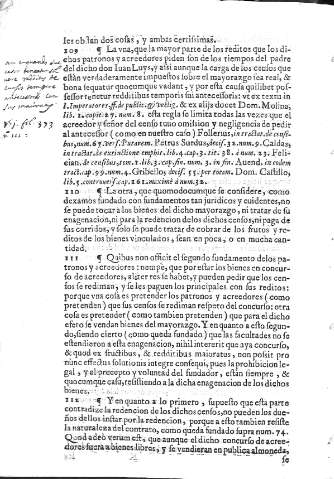 les obstan dos cosas, y ambas certissimas.
109 ¶ La vna, que la mayor parte de los reditos que los di-
chos patronos y acreedores piden son de los tiempos del padre
del dicho don Iuan Luys, y assi aunque la carga de los censos que
están verdaderamente impuestos sobre el mayorazgo sea real, &
bona sequatur quocumque vadant, y por esta causa quilibet pos-
sessor, tenetur redditibus temporis sui antecessoris: vt ex textu in
l. Imperatores, ff. de public. & vectig. & ex alijs docet Dom. Molina,
lib. 2. capit. 27. num. 8. esta regla se limita todas las vezes que el
acreedor y señor del censo tuuo omission y negligencia de pedir
al antecessor (como en nuestro caso) Follerius, in tractat. de censi-
bus, num. 67. vers. Putarem. Petrus Surdus, decis. 32. num. 9. Caldas,
in tractat. de extinctione emphit. lib. 4. cap. 3. tit. 38. & num. 23. Feli-
cian. de censibus, tom. 2. lib. 3. cap. fin. num. 3. in fin. Auend. in eodem
tract. cap. 99. num. 4. Gribello, decis. 55. per totum. Dom. Castillo,
lib. 5. controuers. cap. 161. maximè a num. 32.
110 ¶ La otra, que quomodocumque se considere, como
dexamos fundado con fundamentos tan juridicos y euidentes, no
se puede tocar a los bienes del dicho mayorazgo, ni tratar de su
enagenacion, ni para la redencion de los dichos censos, ni paga de
sus corridos, y solo se puede tratar de cobrar de los frutos y re-
ditos de los bienes vinculados, sean en poca, o en mucha can-
tidad.
111 ¶ Quibus non officit el segundo fundamento de los pa-
tronos y acreedores: nempè, que por estar los bienes en concur-
so de acreedores, alger resi ha haber, y pueden pedir que los cen-
sos se rediman, y se les paguen los principales con sus reditos:
porque vna cosa es pretender los patronos y acreedores (como
pretenden) que sus censos se rediman respeto del concurso: otra
cosa es pretender (como tambien pretenden) que para el dicho
efeto se vendan bienes del mayorazgo. Y en quanto a esto segun-
do, siendo cierto (como queda fundado) que las facultades no se
estendieron a esta enagenacion, nihil intererit que aya concurso,
& quod ex fructibus, & redditibus maioratus, non possit pro
nunc effectus solutionis integrè consequi, pues la prohibicion le-
gal, y el precepto y voluntad del fundador, están siempre, &
quocumque casu, resistiendo a la dicha enagenacion de los dichos
bienes.
112 ¶ Y en quanto a lo primero, supuesto que esta parte
contradize la redencion de los dichos censos, no pueden los due-
ños dellos instar por la redencion, porque a esto tambien resiste
la naturaleza del contrato, como queda fundado supra num. 74.
Quod adeò verum est, que aunque el dicho concurso de acree-
dores fuera a bienes libres, y se vendieran en publica almoneda,
se